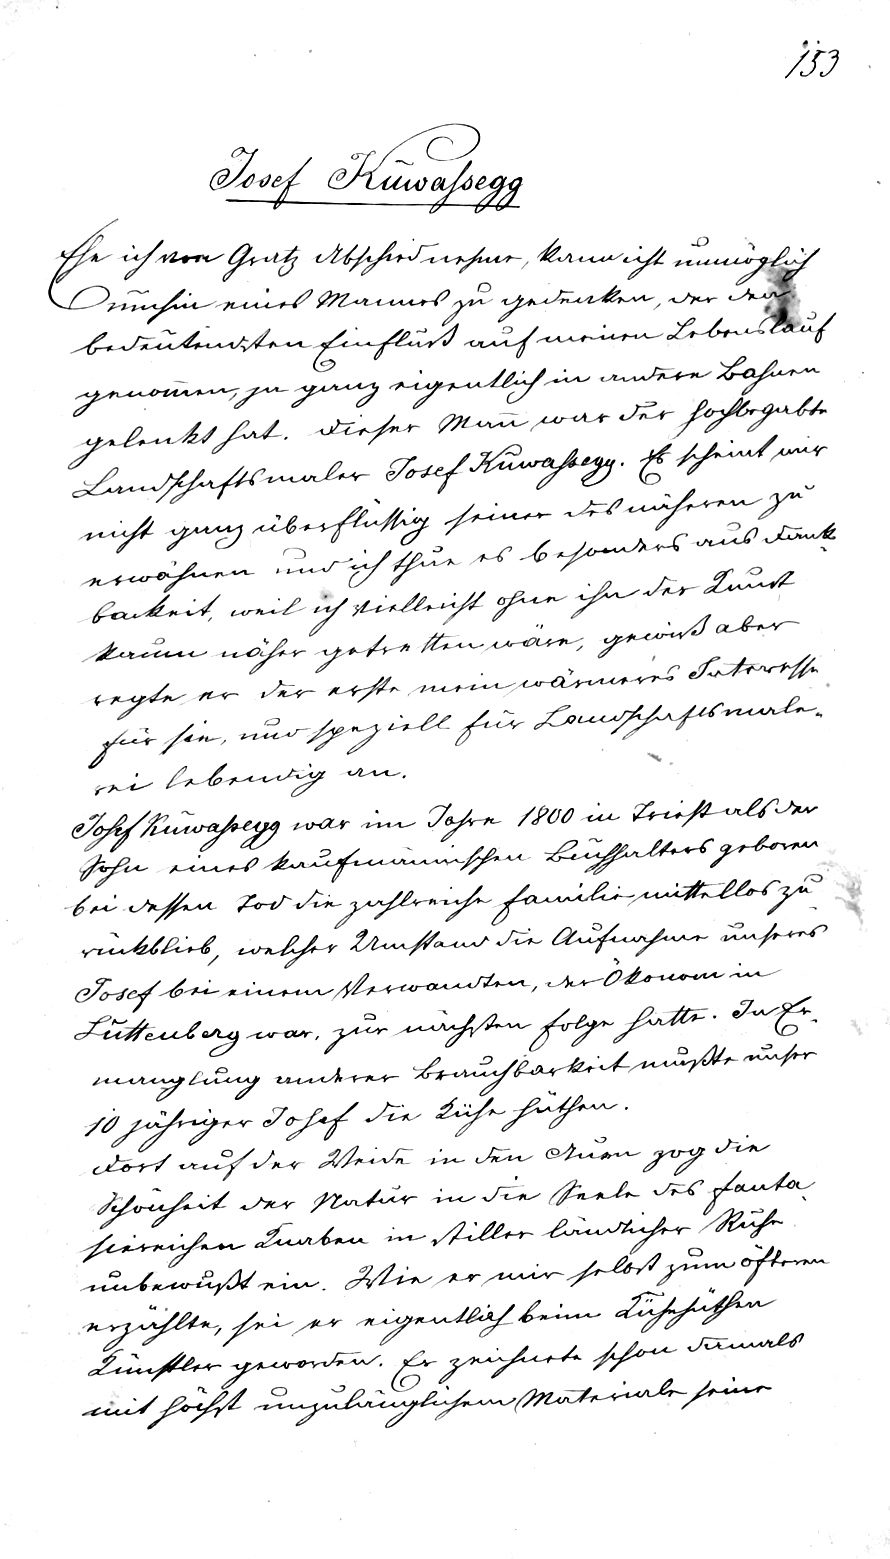 153
Josef Kuwassegg
Ehe ich von Gratz Abschied nehme, kann ich unmöglich
umhin eines Mannes zu gedenken, der den
bedeutendsten Einfluß auf meinen Lebenslauf
genommen, ja ganz eigentlich in andere Bahnen
gelenkt hat. Dieser Mann war der hochbegabte
Landschaftsmaler Josef Kuwassegg. Es scheint mir
nicht ganz überflüssig seiner des näheren zu
erwähnen und ich thue es besonders aus Dank-
barkeit, weil ich vielleicht ohne ihn der Kunst
kaum näher getretten wäre, gewiß aber
regte er der erste mein wärmeres Interesse
für sie, und speziell für Landschaftsmale-
rei lebendig an.
Josef Kuwassegg war im Jahre 1800 in Triest als der
Sohn eines kaufmännischen Buchhalters geboren
bei dessen Tod die zahlreiche Familie mittellos zu
rückblieb, welcher Umstand die Aufnahme unseres
Josef bei einem Verwandten, der Ökonom in
Luttenberg war, zur nächsten Folge hatte. In Er-
manglung anderer Brauchbarkeit mußte unser
10 jähriger Josef die Kühe hüthen.
Dort auf der Weide in den Auen zog die
Schönheit der Natur in die Seele des fanta-
siereichen Knaben in stiller ländlicher Ruhe
unbewußt ein. Wie er mir selbst zum öfteren
erzählte, sei er eigentlich beim Kühehüthen
Künstler geworden. Er zeichnete schon damals
mit höchst unzulänglichem Materiale seine